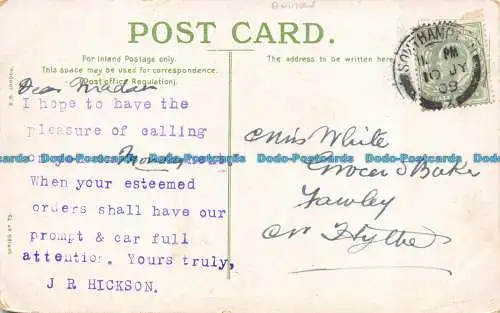 POST CARD.
For Inland Postage only.
This space may be used for correspondence.
(Post office Regulation).
The address to be written here.
Dear Madam
I hope to have the
pleasure of calling
on Monday
When your esteemed
orders shall have our
prompt & car full
attention. Yours truly,
J R HICKSON.
Miss White
Grocer & Baker
Fawley
Nr Hythe
SOUTHAMPTON
PM
10 JY
09
Dodo-Postcards Dodo-Postcards Dodo-Postcards Dodo-Postcards